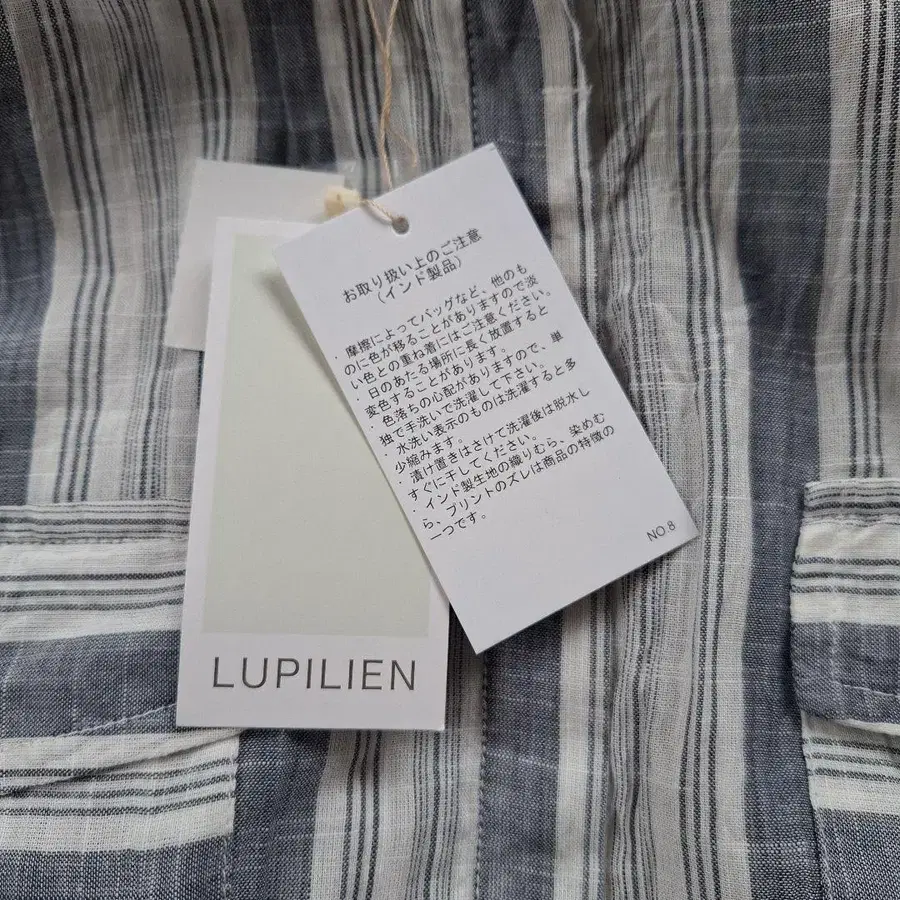 お取り扱い上のご注意
(インド製品)
・摩擦によってバッグなど、他のも
のに色が移ることがありますので淡
い色との重ね着にはご注意ください。
・日のあたる場所に長く放置すると
変色することがあります。
・色落ちの心配がありますので、単
独で手洗いで洗濯して下さい。
・水洗い表示のものは洗濯すると多
少縮みます。
・漬け置きはさけて洗濯後は脱水し
すぐに干してください。
・インド製生地の織りむら、染めむ
ら、プリントのズレは商品の特徴の
一つです。
NO.8
LUPILIEN